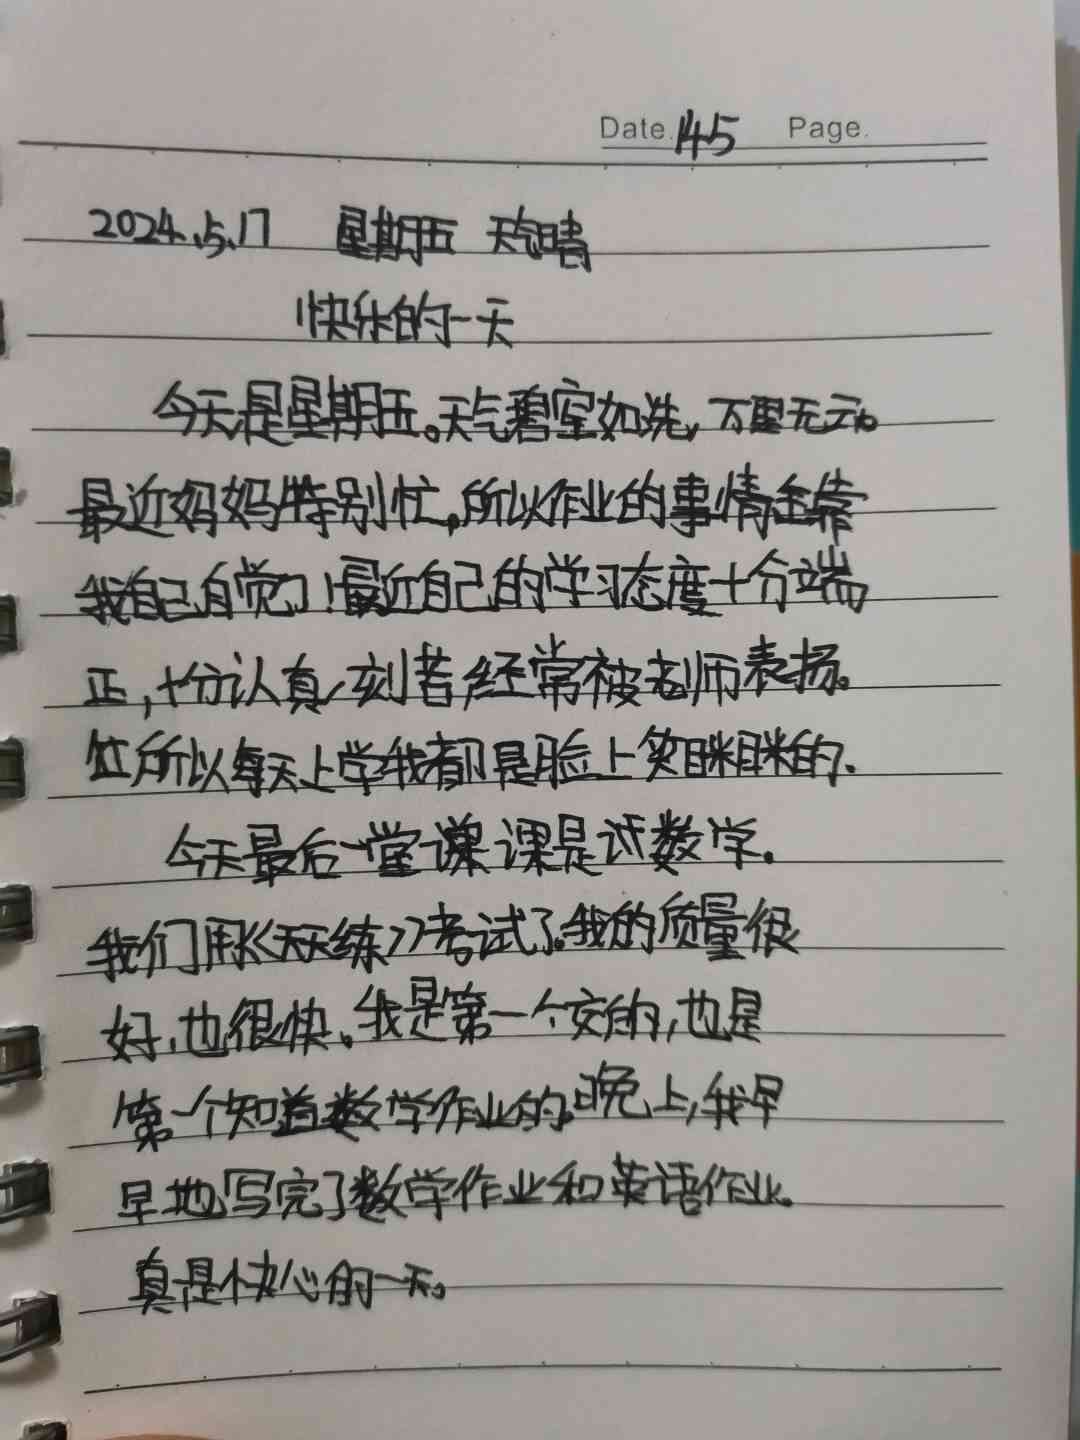 Date. 145 Page.
2024.5.17 星期五 天气晴
快乐的一天
今天是星期五。天气碧空如洗，万里无云。
最近妈妈特别忙，所以作业的事情全靠
我自己自觉了！最近自己的学习态度十分端
正，十分认真，刻苦经常被老师表扬。
所以每天上学我都是脸上笑眯眯的.
今天最后一堂课课是试数学.
我们用《天天练》考试了。我的质量很
好，也很快。我是第一个交的，也是
第一个知道数学作业的。晚上，我早
早地写完了数学作业和英语作业。
真是快心的一天。